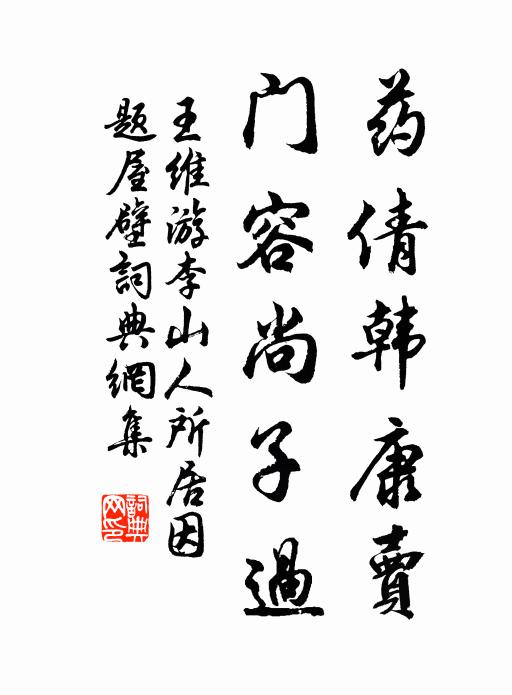 药倩韩康賣
门容尚子過
王维游李山人所居因
题屋壁詞典網集
詞典
网印